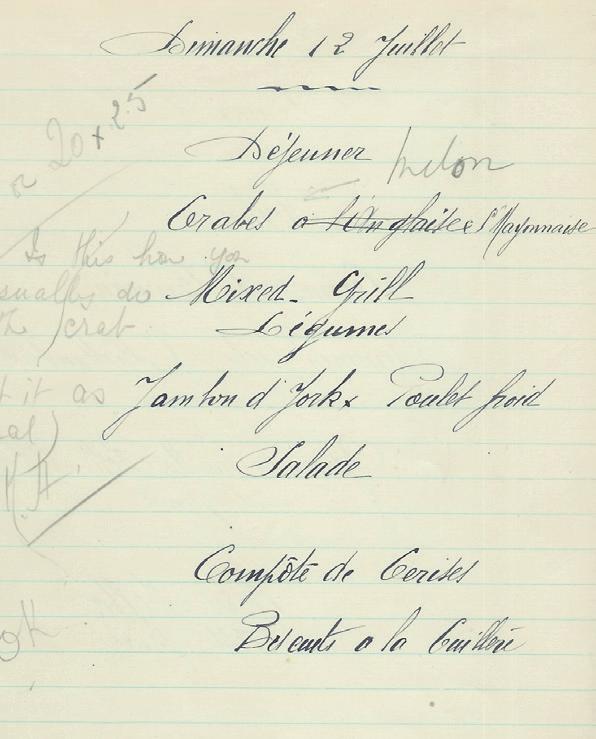 Dimanche 12 Juillet
or 20 x 25
Déjeuner
Melon
Crabes a l'Anglaise S/ Mayonnaise
Is this how you
usually do
the crab
Mixed - Grill
Légumes
t it as
al)
Jambon d'York x Poulet froid
Salade
OK
Compôte de Cerises
Biscuits a la Cuillère